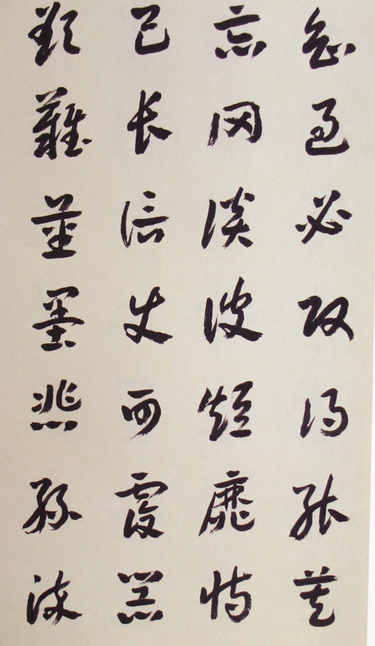 知过必改得能莫
忘罔谈彼短靡恃
己长信使可覆器
欲难量墨悲丝染